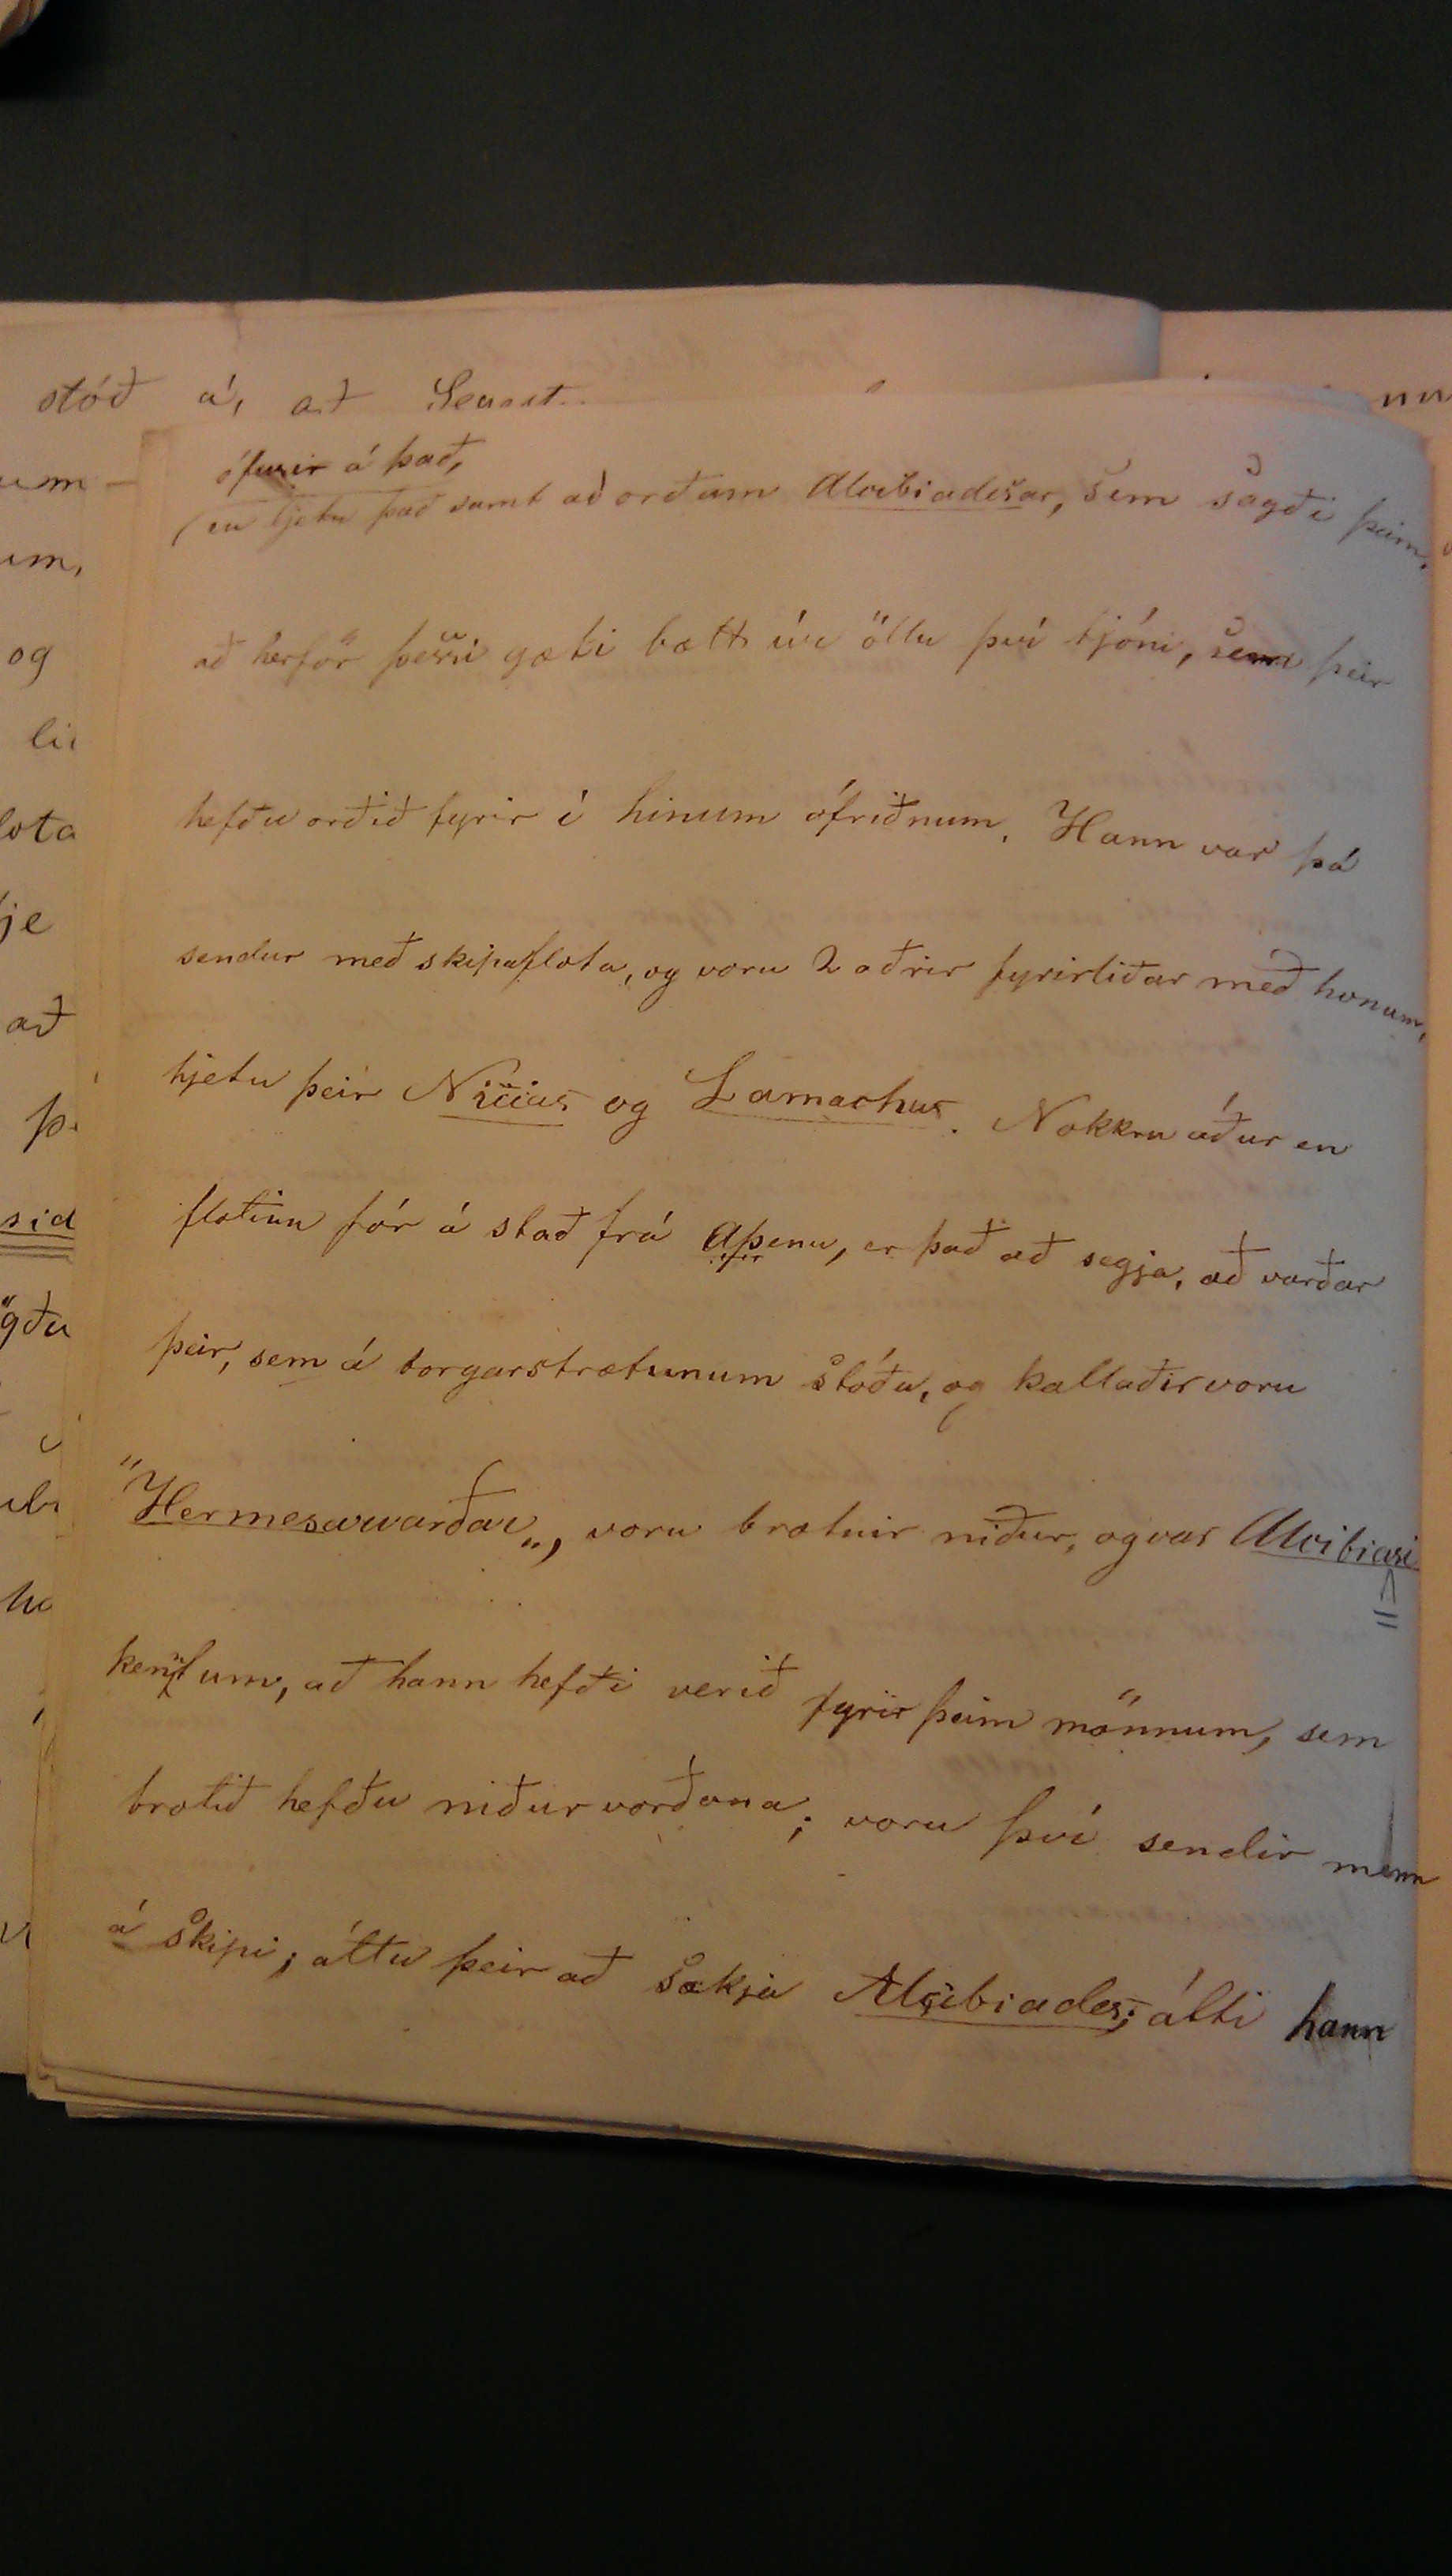 stóð á, að
ófusir á það,
en ljetu það samt að orðum Alcibiadesar, sem sagði þeim,
að herför þessi gæti bætt úr öllu því tjóni, sem þeir
hefðu orðið fyrir í hinum ófriðnum. Hann var þá
sendur með skipaflota, og voru 2 aðrir fyrirliðar með honum,
hjetu þeir Nicias og Lamachus. Nokkru áður en
flotinn fór á stað frá Aþenu, er það að segja, að varðar
þeir, sem á borgarstrætunum stóðu, og kallaðir voru
"Hermesarvarðar", voru brotnir niður, og var Alcibiasi
kennt um, að hann hefði verið fyrir þeim mönnum, sem
brotið hefðu niður varðana; voru því sendir menn
á skipi; áttu þeir að sækja Alcibiades; átti hann
um
og
að